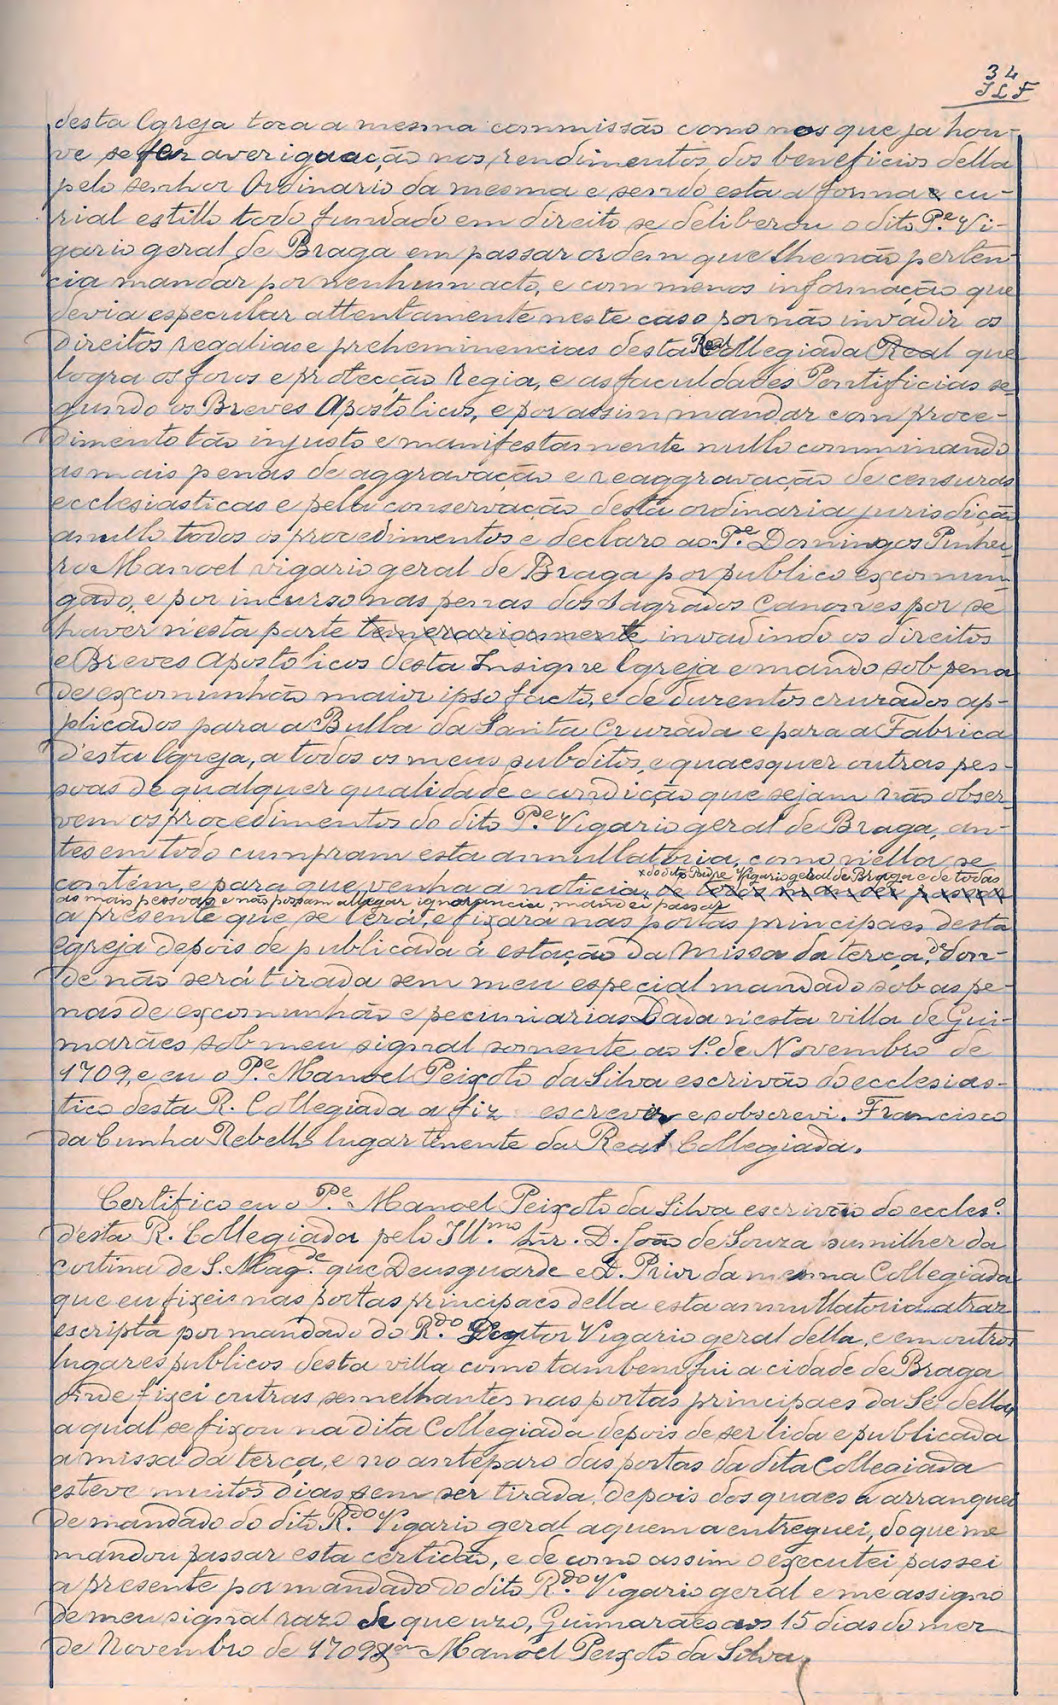 34
JLF
desta Egreja toca a mesma commissão como nos que ja hou-
ve se fez averiguação nos rendimentos dos beneficios della
pelo senhor Ordinario da mesma e sendo esta a forma e cu-
rial estillo todo fundado em direito se deliberou o dito P.e Vi-
gario geral de Braga em passar ordem que lhe não perten-
cia mandar por nenhum acto, e com menos informação que
devia especular attentamente neste caso por não invadir os
direitos regalias e preheminencias desta Real Collegiada Real que
logra os foros e protecção Regia, e as faculdades Pontificias se-
gundo os Breves Apostolicos, e por assim mandar com proce-
dimento tão injusto e manifestamente nullo comminando
as mais penas de aggravação e reaggravação de censuras
ecclesiasticas e pela conservação desta ordinaria jurisdição
annullo todos os procedimentos e declaro ao P.e Domingos Pinhei-
ro Manoel vigario geral de Braga por publico excommun-
gado, e por incurso nas penas dos Sagrados Canones por se
haver n'esta parte temerariamente invadindo os direitos
e Breves Apostolicos desta Insigne Egreja e mando sob pena
de excomunhão maior ipso facto, e de duzentos cruzados ap-
plicados para a Bulla da Santa Cruzada e para a Fabrica
d'esta Egreja, a todos os meus subditos, e quaesquer outras pes-
soas de qualquer qualidade e condição que sejam não obser-
vem os procedimentos do dito P.e Vigario geral de Braga, an-
tes em todo cumpram esta annullatoria, como n'ella se
x do dito Padre Vigario geral de Braga e de todas
contém, e para que venha a noticia de todos mandei passar
as mais pessoas e não possam allegar ignorancia, mandei passar
a presente que se lerá, e fixara nas portas principaes desta
Egreja depois de publicada á estação da Missa da terça, don-
de não será tirada sem meu especial mandado sob as pe-
nas de excomunhão e pecuniarias Dada n'esta villa de Gui-
marães sob meu signal somente ao 1.º de Novembro de
1709, e eu o P.e Manoel Peixoto da Silva escrivão do ecclesias-
tico desta R. Collegiada a fiz escrever e sobscrevi. Francisco
da Cunha Rebello lugar tenente da Real Collegiada.
Certifico eu o P.e Manoel Peixoto da Silva escrivão do eccles.º
d'esta R. Collegiada pelo Ill.mo Snr. D. João de Souza sumilher da
cortina de S. Mag.de que Deus guarde e D. Prior da mesma Collegiada
que eu fixei nas portas principaes della esta annullatoria atraz
escripta por mandado do R.do Doutor Vigario geral della, e em outros
lugares publicos desta villa como tambem fui a cidade de Braga
onde fixei outras semelhantes nas portas principaes da Sé della,
a qual se fixou na dita Collegiada depois de ser lida e publicada
a missa da terça, e no anteparo das portas da dita Collegiada
esteve muitos dias sem ser tirada, depois dos quaes a arranquei
de mandado do dito R.do Vigario geral a quem a entreguei, do que me
mandou passar esta certidão, e de como assim o executei passei
a presente por mandado do dito R.do Vigario geral e me assigno
de meu signal razo de que uzo, Guimarães aos 15 dias do mez
de Novembro de 1709 Manoel Peixoto da Silva,